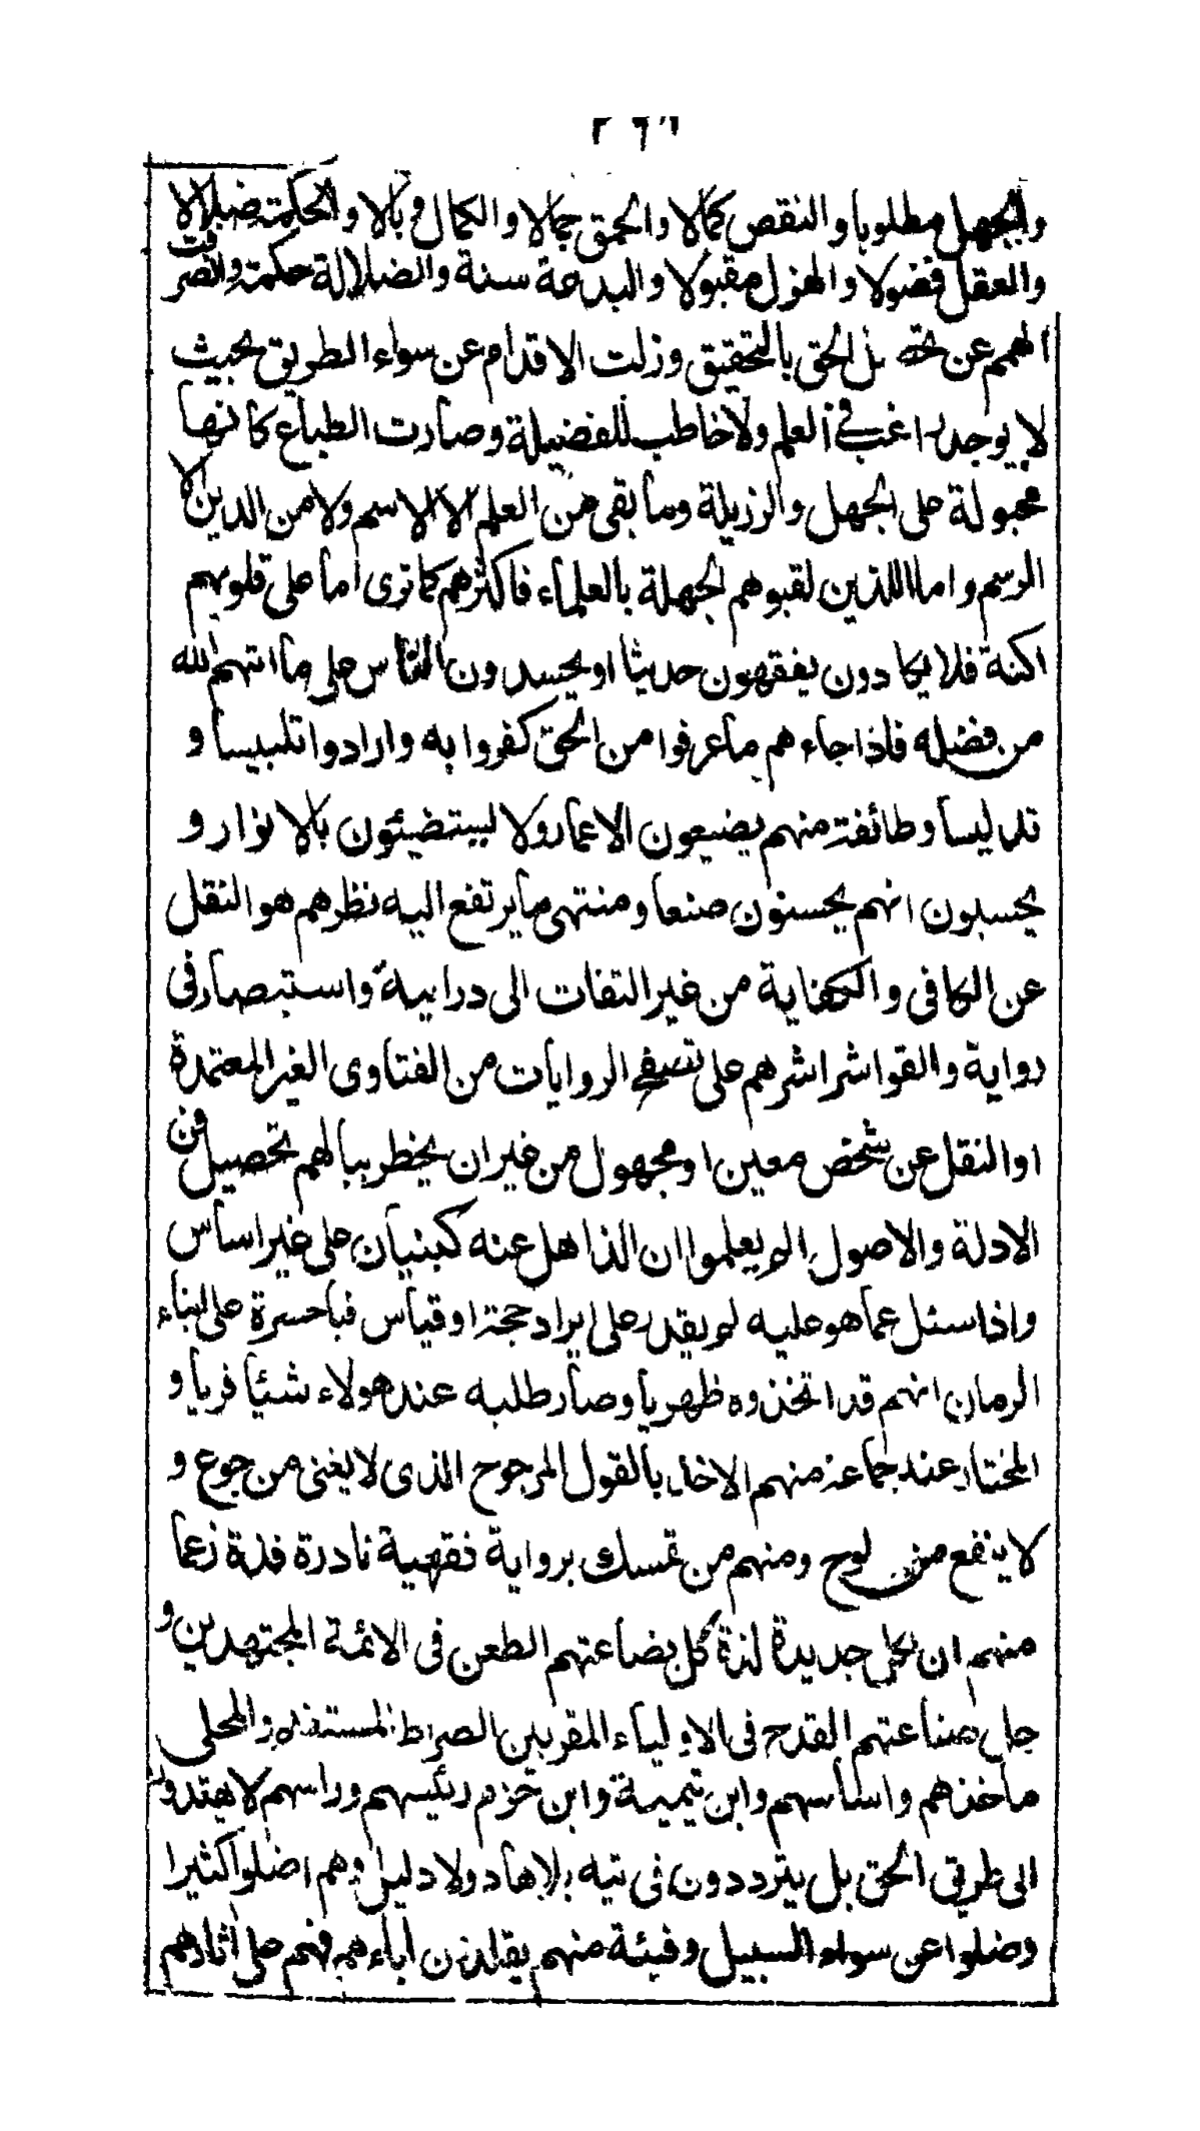 والجهل مطلوبا والنقص كمالا والحمق جمالا والكمال وبالا والحكمة ضلالا
والعقل فضولا والهزل مقبولا والبدعة سنة والضلالة حكمة وانصرفت
الهمم عن الحق بالتحقيق وزلت الاقدام عن سواء الطريق بحيث
لا يوجد راغب فى العلم ولا خاطب للفضيلة وصارت الطباع كانها
مجبولة على الجهل والرزيلة وما بقى من العلم الا الاسم ولا من الدين الا
الرسم واما اللذين لقبوهم الجهلة بالعلماء فاكثرهم كما ترى اما على قلوبهم
اكنة فلا يكادون يفقهون حديثا او يحسدون الناس على ما اتهم الله
من فضله فاذا جاءهم ما عرفوا من الحق كفروا به وارادوا تلبيسا و
تدليسا وطائفة منهم يضيعون الاعمار ولا ليبتضيئون بالانوار و
يحسبون انهم يحسنون صنعا ومنتهى ما يرتفع اليه نظرهم هو النقل
عن الكافى والكفاية من غير التفات الى دراية واستبصار فى
رواية والقوا شراشرهم على الروايات من الفتاوى الغير المعتمدة
او النقل عن شخص معين او مجهول من غير ان يخطر ببالهم تحصيل فن
الادلة والاصول الم يعلموا ان الذاهل عنه كبنيان على غير اساس
واذا سئل عما هو عليه لم يقدر على ايراد حجة او قياس فيا حسرة على ابناء
الزمان انهم قد اتخذوه ظهريا وصار طلبه عند هولاء شيئا فريا و
المختار عند جماعة منهم الاخذ بالقول المرجوح الذى لا يغنى من جوع و
لا ينفع من لوح ومنهم من تمسك برواية فقهية نادرة فذة زعما
منهم ان لكل جديدة لذة كل بضاعتهم الطعن فى الائمة المجتهدين و
جل صناعتهم القدح فى الاولياء المقربين الصراط المستقيم والمحلى
ماخذهم واساسهم وابن تيمية وابن حزم رئيسهم وراسهم لا يهتدون
الى طريق الحق بل يترددون فى تيه بلا هاد ولا دليل وهم اضلوا كثيرا
وضلوا عن سواء السبيل وفيئة منهم يقلدون اباءهم فهم على اثارهم